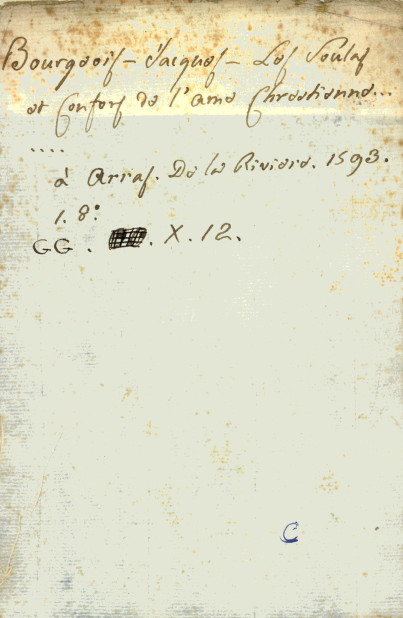 Bourgeois - Jacques - Les Soulas
et Confors de l'ame Chrestienne...
....
à Arras. De la Riviere. 1593.
1. 8°.
GG. . X. 12.
C